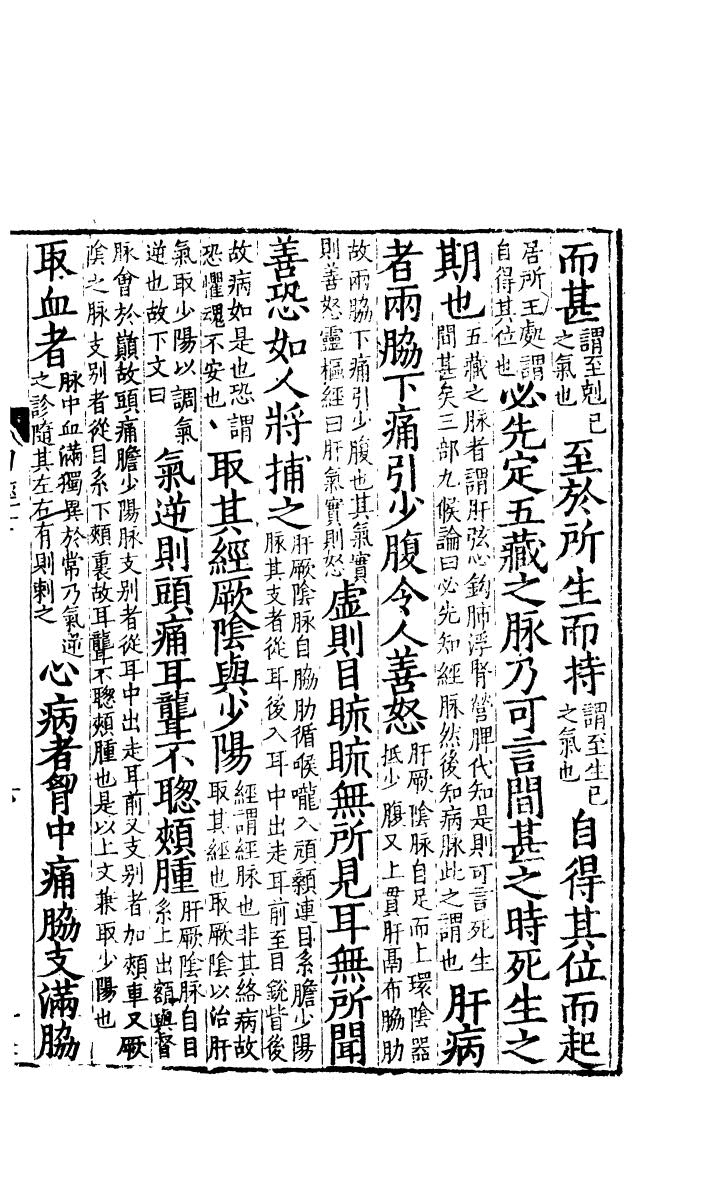 而甚謂至剋已之氣也至於所生而持謂至生已之氣也自得其位而起
居所王處謂自得其位也必先定五藏之脉乃可言間甚之時死生之
期也五藏之脉者謂肝弦心鈎肺浮腎營脾代知是則可言死生間甚矣三部九候論曰必先知經脉然後知病脉此之謂也肝病
者兩脇下痛引少腹令人善怒肝厥陰脉自足而上環陰器抵少腹又上貫肝鬲布脇肋
故兩脇下痛引少腹也其氣實則善怒靈樞經曰肝氣實則怒虛則目䀮䀮無所見耳無所聞
善恐如人將捕之肝厥陰脉自脇肋循喉嚨入頑顙連目系膽少陽脉其支者從耳後入耳中出走耳前至目銳眥後
故病如是也恐謂恐懼魂不安也取其經厥陰與少陽經謂經脉也非其絡病故取其經也取厥陰以治肝
氣取少陽以調氣逆也故下文曰氣逆則頭痛耳聾不聦頰腫肝厥陰脉自目系上出額與督
脉會於巔故頭痛膽少陽脉支别者從耳中出走耳前又支别者加頰車又厥陰之脉支别者從目系下頰裏故耳聾不聦頰腫也是以上文兼取少陽也
取血者脉中血滿獨異於常乃氣逆之診隨其左右有則刺之心病者胷中痛脇支滿脇